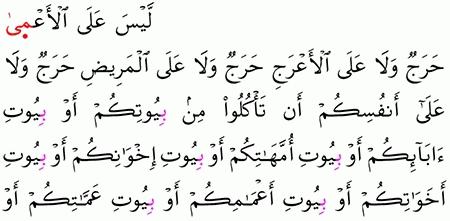 لَّيۡسَ عَلَى ٱلۡأَعۡمِىٰ
حَرَجٞ وَلَا عَلَى ٱلۡأَعۡرَجِ حَرَجٞ وَلَا عَلَى ٱلۡمَرِيضِ حَرَجٞ وَلَا
عَلَىٰٓ أَنفُسِكُمۡ أَن تَأۡكُلُواْ مِنۢ بِيُوتِكُمۡ أَوۡ بِيُوتِ
ءَابَآئِكُمۡ أَوۡ بِيُوتِ أُمَّهَٰتِكُمۡ أَوۡ بِيُوتِ إِخۡوَٰنِكُمۡ أَوۡ بِيُوتِ
أَخَوَٰتِكُمۡ أَوۡ بِيُوتِ أَعۡمَٰمِكُمۡ أَوۡ بِيُوتِ عَمَّٰتِكُمۡ أَوۡ